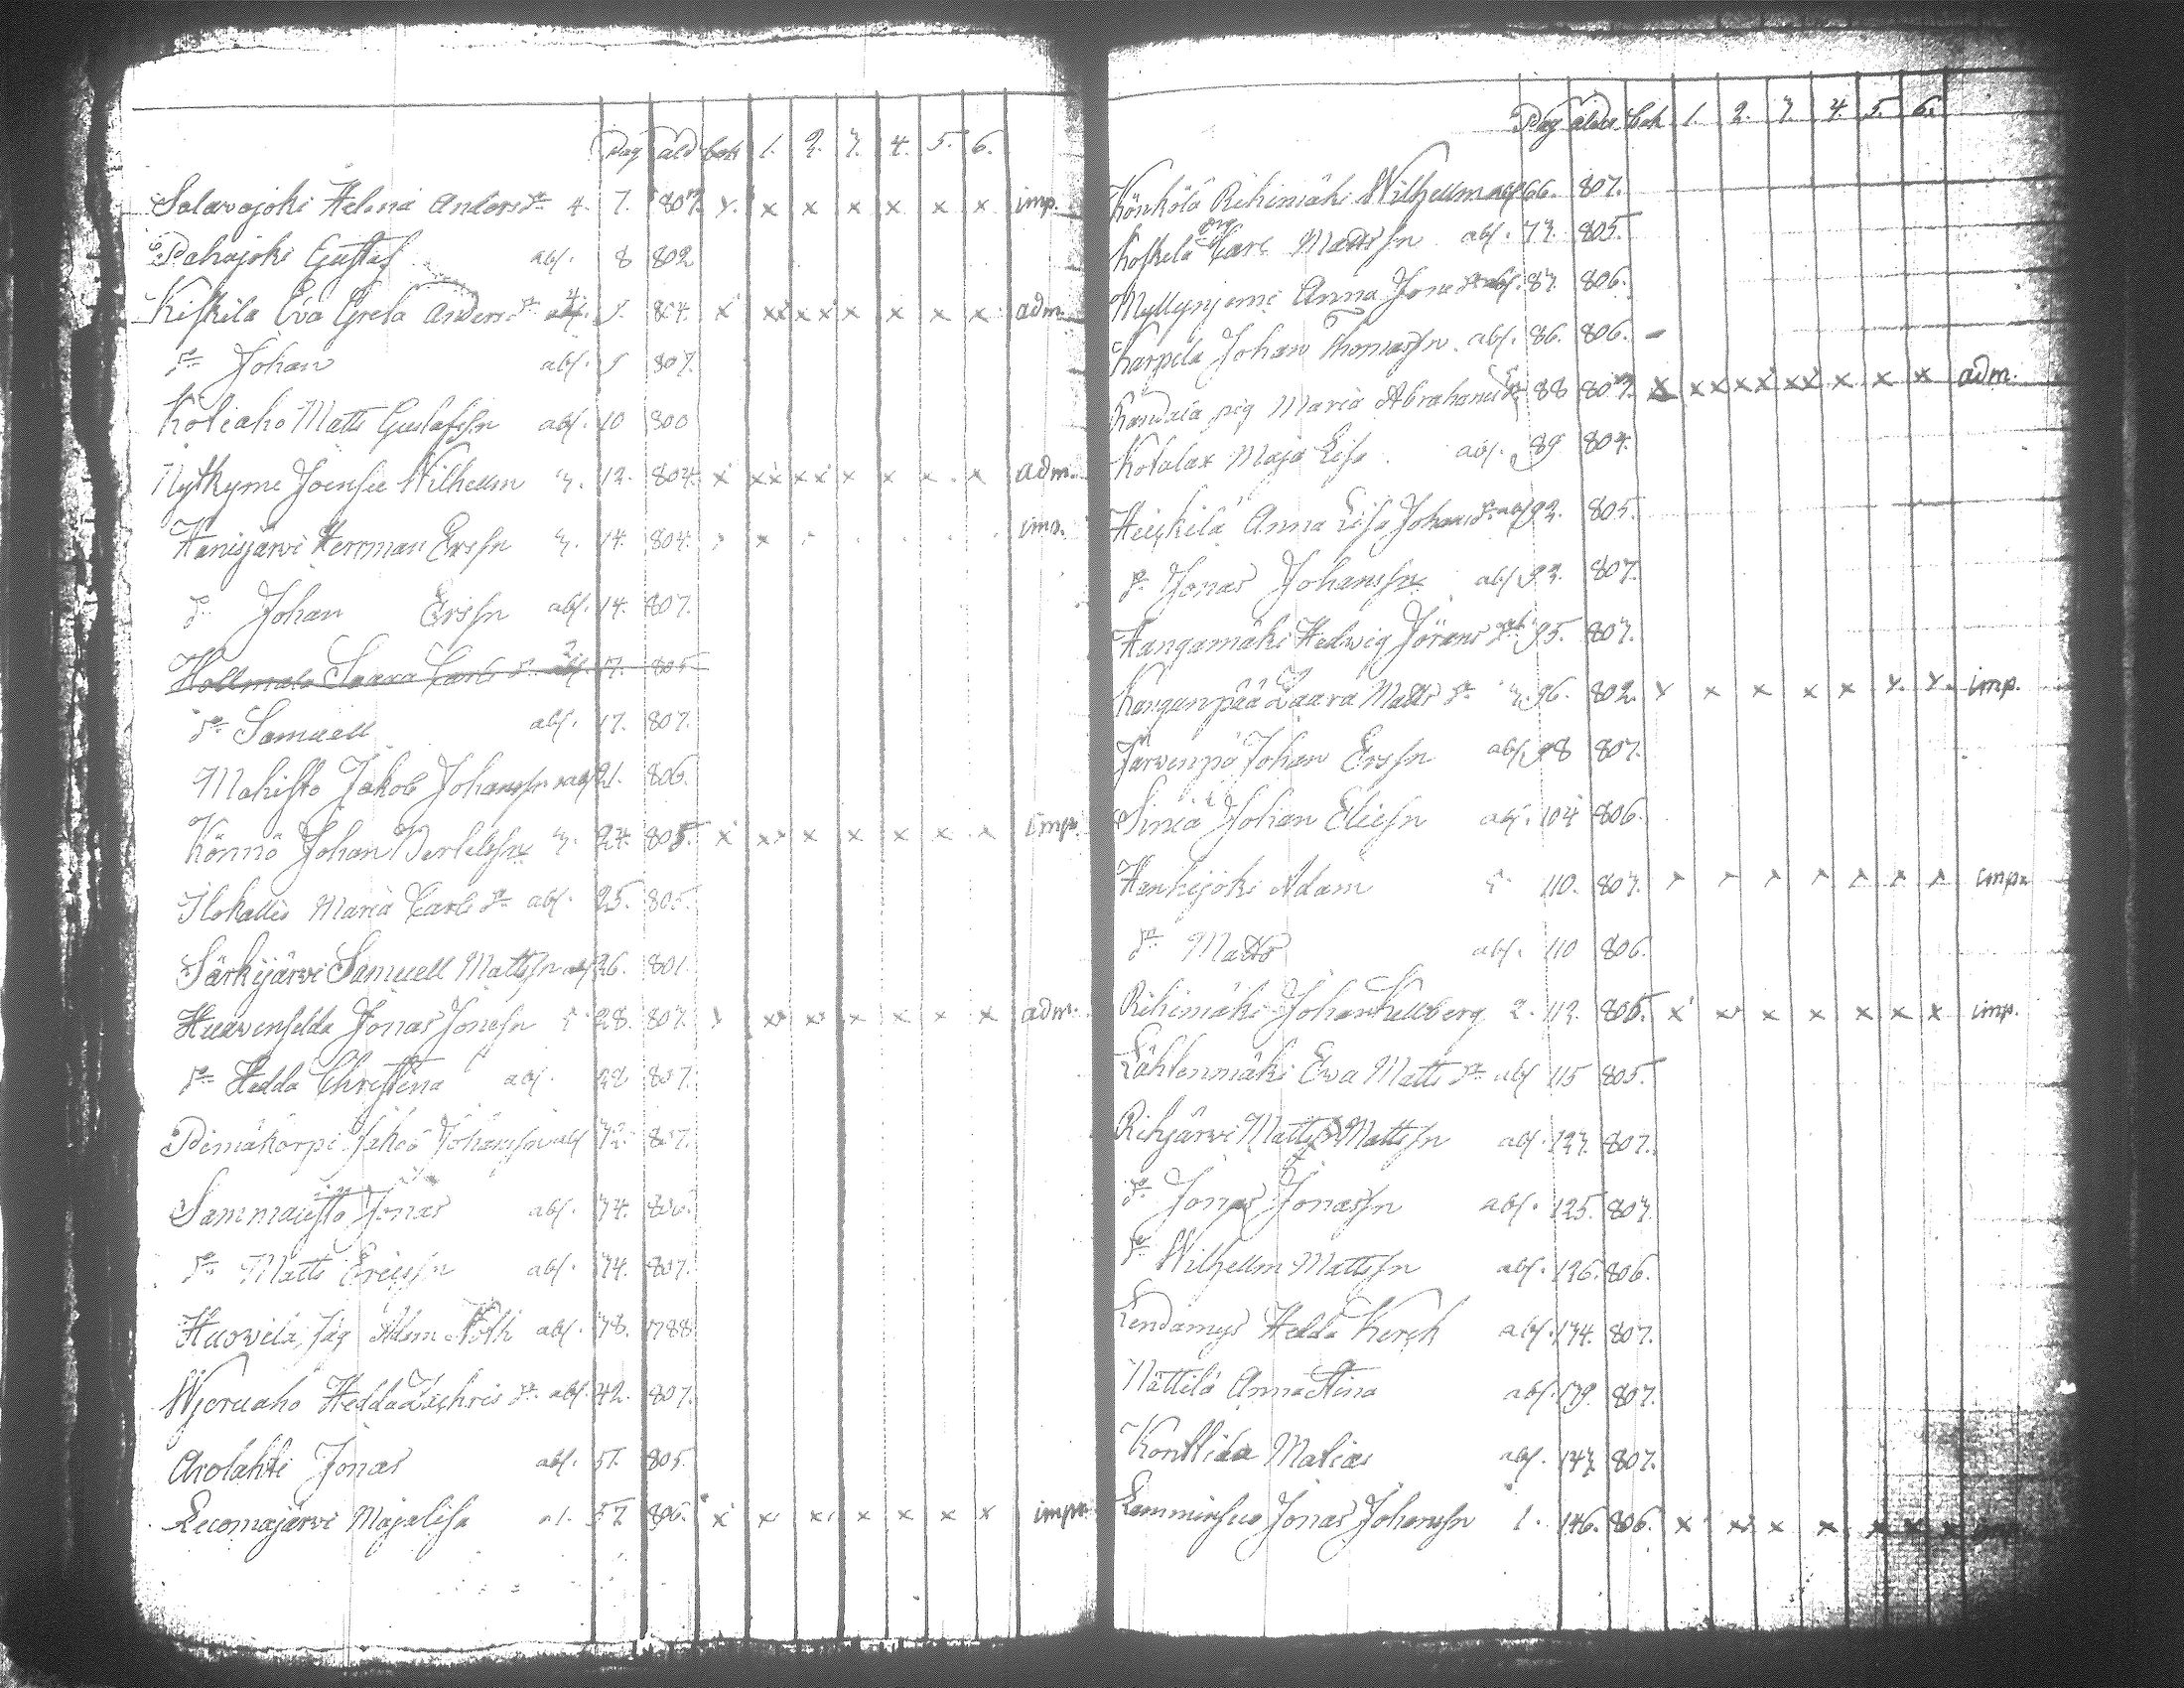 Pag åld bok 1. 2. 3. 4. 5. 6.
Salavajoki Helena Anders dr 4. 7. 807. x. x x x x x x imp.
Pahajoki Gustaf abs. 8 802
Kiskila Eva Greta Anders dr 804. x xx xx x x x x adm.
dr Johan abs. 807.
Koliaho Matts Gustafssn abs. 10 800
Nytkyme Joensuu Wilhelm 3. 13. 804. x xx xx x x x x adm.
Hanisjarvi Herrman Erssn 3. 14. 804. imp.
dr Johan Erssn abs. 14. 807.
Hollmala Saara Carls dr 17. 805
dr Samuell abs. 17. 807.
Mahisto Jakob Johanssn abs 21. 806.
Könnö Johan Bertelssn 3. 24. 805. x xx x x x x x imp.
Ilokallio Maria Carls dr abs. 25. 805.
Särkijärvi Samuell Mattssn abs 26. 801.
Jonas Jonessn 28. 807. x xx xx x x x x adm.
dr Hedda Christina abs. 807.
Johanssn abs 807.
Sammalisto Jonas abs. 34.
dr Matts Ericssn abs. 34. 807.
Huovila Adam abs. 38. 1788
Hedda Zachris dr. abs. 42. 807.
Arolahti Jonas abs. 51. 805.
Lecomajärvi Majalisa 57 806. x x x x x x x imp.
Pag ålder bok 1. 2. 3. 4. 5. 6.
Könkölä Rihimäki Wilhelm abs 66. 807.
Koskela Carl Mattssn abs. 73. 805.
Myllyniemi Anna Jone dr abs. 83. 806.
Karpela Johan Thomassn abs. 86. 806.
pig Maria Abrahams dr 88 807. x xx xx xx x x x adm.
Kotalax Maja Lisa abs. 89 804.
Heiskilä Anna Lisa Johans dr abs 93. 805.
dr Jonas Johanssn abs 93. 807.
Kangamäki Hedvig Jörans dr abs 95. 807.
Kanganpää Zaara Matts dr 3. 96. 802. x x x x x x. x. imp.
Järvenpä Johan Erssn abs 98 807.
Sinia Johan Eliessn abs. 104 806.
Hankijoki Adam 110. 807. x x x x x x x imp.
dr Matts abs. 110 806.
Rihimäki Johan Kullberg 2. 113. 805. x xx x x x x x imp.
Lähtenmäki Eva Matts dr abs 115 805.
Matts Mattssn abs. 123. 807.
dr Jonas Jonassn abs. 125. 807.
dr Wilhelm Mattssn abs. 126. 806.
Hedda abs. 134. 807.
Nättilä Anna Stina abs. 139. 807.
Konttila Matias abs. 143. 807.
Jonas Johanssn 1. 146. 806. x xx x x x x x imp.